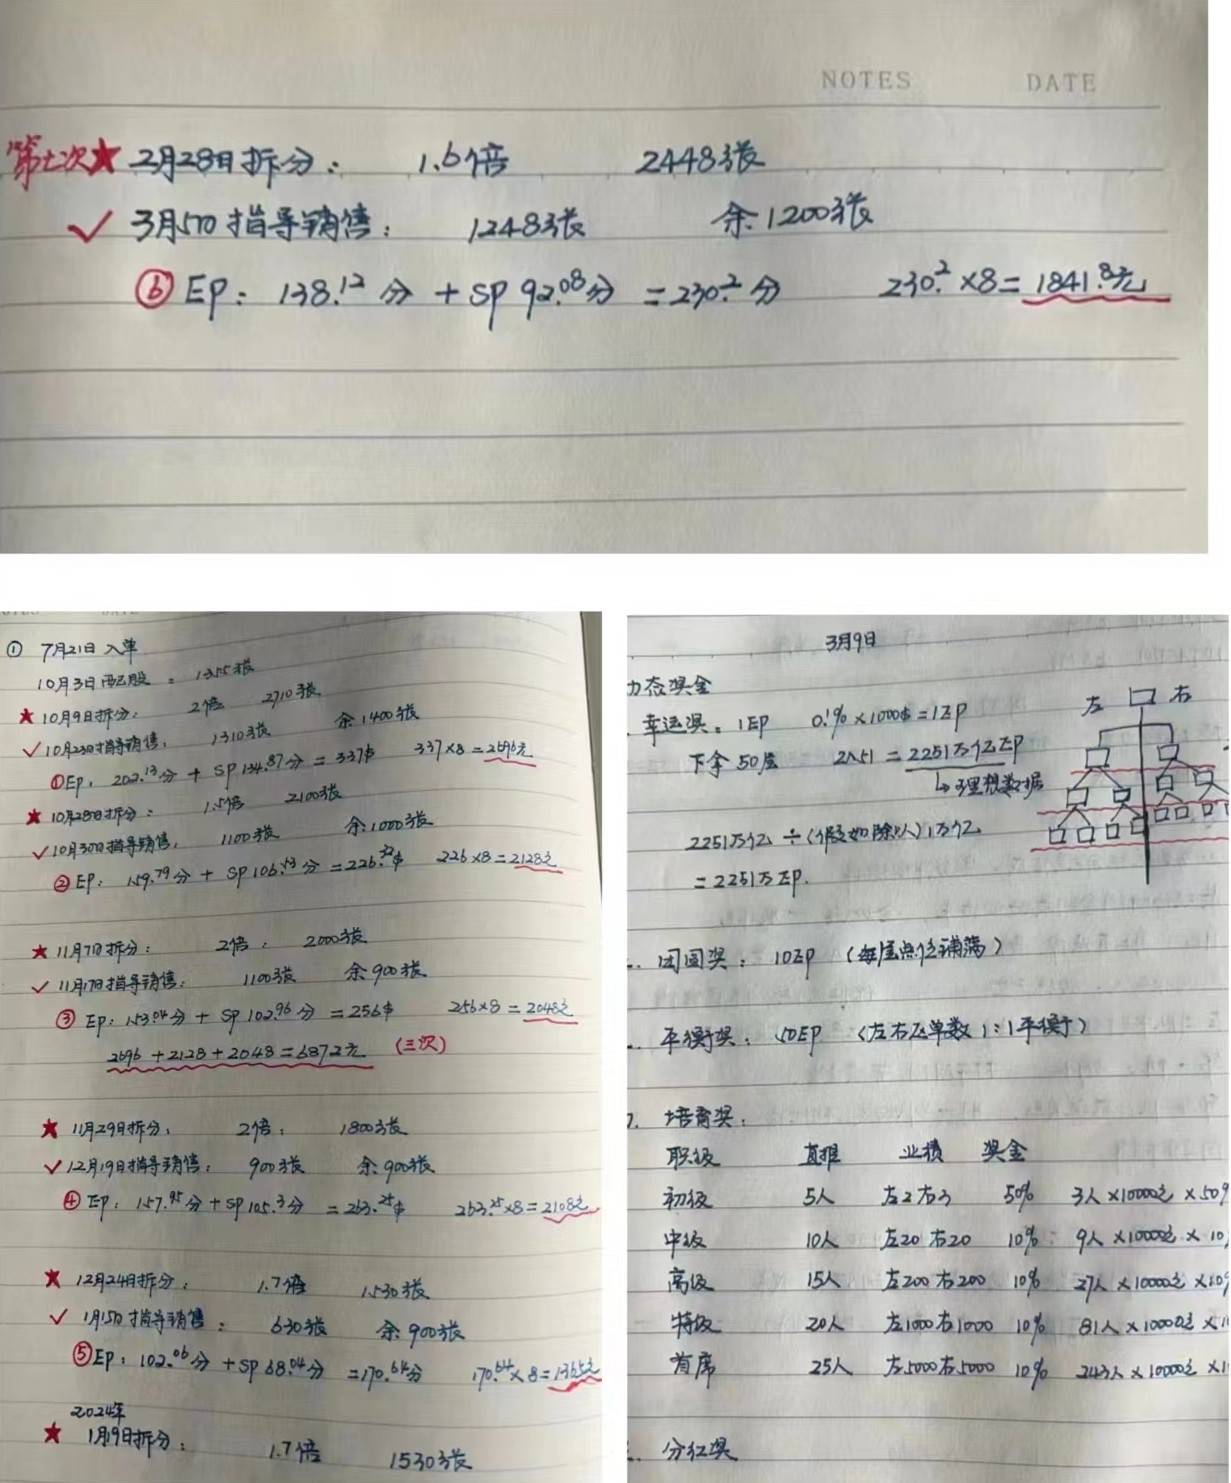 NOTES DATE
第七次★ 2月28日拆分： 1.6倍 2448张
✓ 3月5日指导销售： 1248张 余1200张
⑥ EP： 138.12分 + SP 92.08分 = 230.2分 230.2×8= 1841.8元
① 7月21日入单
10月3日配股： 1355张
★ 10月9日拆分： 2倍 2710张
✓ 10月23日指导销售： 1310张 余1400张
①EP： 202.13分 + SP 134.87分 = 337$ 337×8=2696元
★ 10月28日拆分： 1.5倍 2100张
✓ 10月30日指导销售： 1100张 余1000张
② EP： 159.79分 + SP 106.53分 = 226.$ 226×8=2128元
★ 11月7日拆分： 2倍： 2000张
✓ 11月17日指导销售： 1100张 余900张
③ EP： 153.04分 + SP 102.96分 = 256$ 256×8=2048元
2696+2128+2048=6872元 (三次)
★ 11月29日拆分： 2倍： 1800张
✓ 12月19日指导销售： 900张 余900张
④ EP： 157.95分 + SP 105.3分 = 263.25$ 263.25×8=2108元
★ 12月24日拆分： 1.7倍 1530张
✓ 1月5日指导销售： 630张 余900张
⑤EP： 102.06分 + SP 68.04分 =170.64分 170.64×8=1365元
2024年
★ 1月19日拆分： 1.7倍 1530张
3月9日
动态奖金
幸运奖。1EP 0.1%×1000$=1EP
左 右
下拿50层 2^51 = 2251万亿EP
↳理想数据
2251万亿÷(假如除以)1万亿
=2251万EP.
团圆奖： 10EP (每层点位铺满)
平衡奖： 50EP (左右区单数1:1平衡)
培育奖：
职级 直推 业绩 奖金
初级 5人 左3右3 50% 3人×10000元×50%
中级 10人 左20右20 10% 9人×10000元×10
高级 15人 左200右200 10% 27人×10000元×10%
特级 20人 左1000右1000 10% 81人×10000元×1
首席 25人 左5000右5000 10% 243人×10000元×1
分红奖